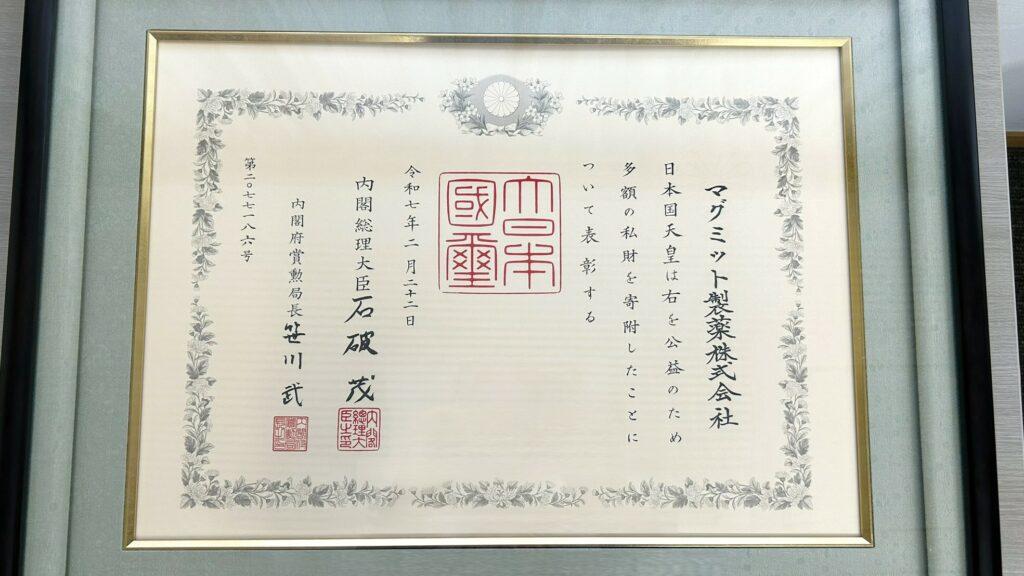 マグミット製薬株式会社
日本国天皇は右を公益のため
多額の私財を寄附したことに
ついて表彰する
大日本
國璽
令和七年二月二十二日
内閣総理大臣 石破 茂
内閣総理大臣之印
内閣府賞勲局長 笹川 武
第二〇七七一八六号